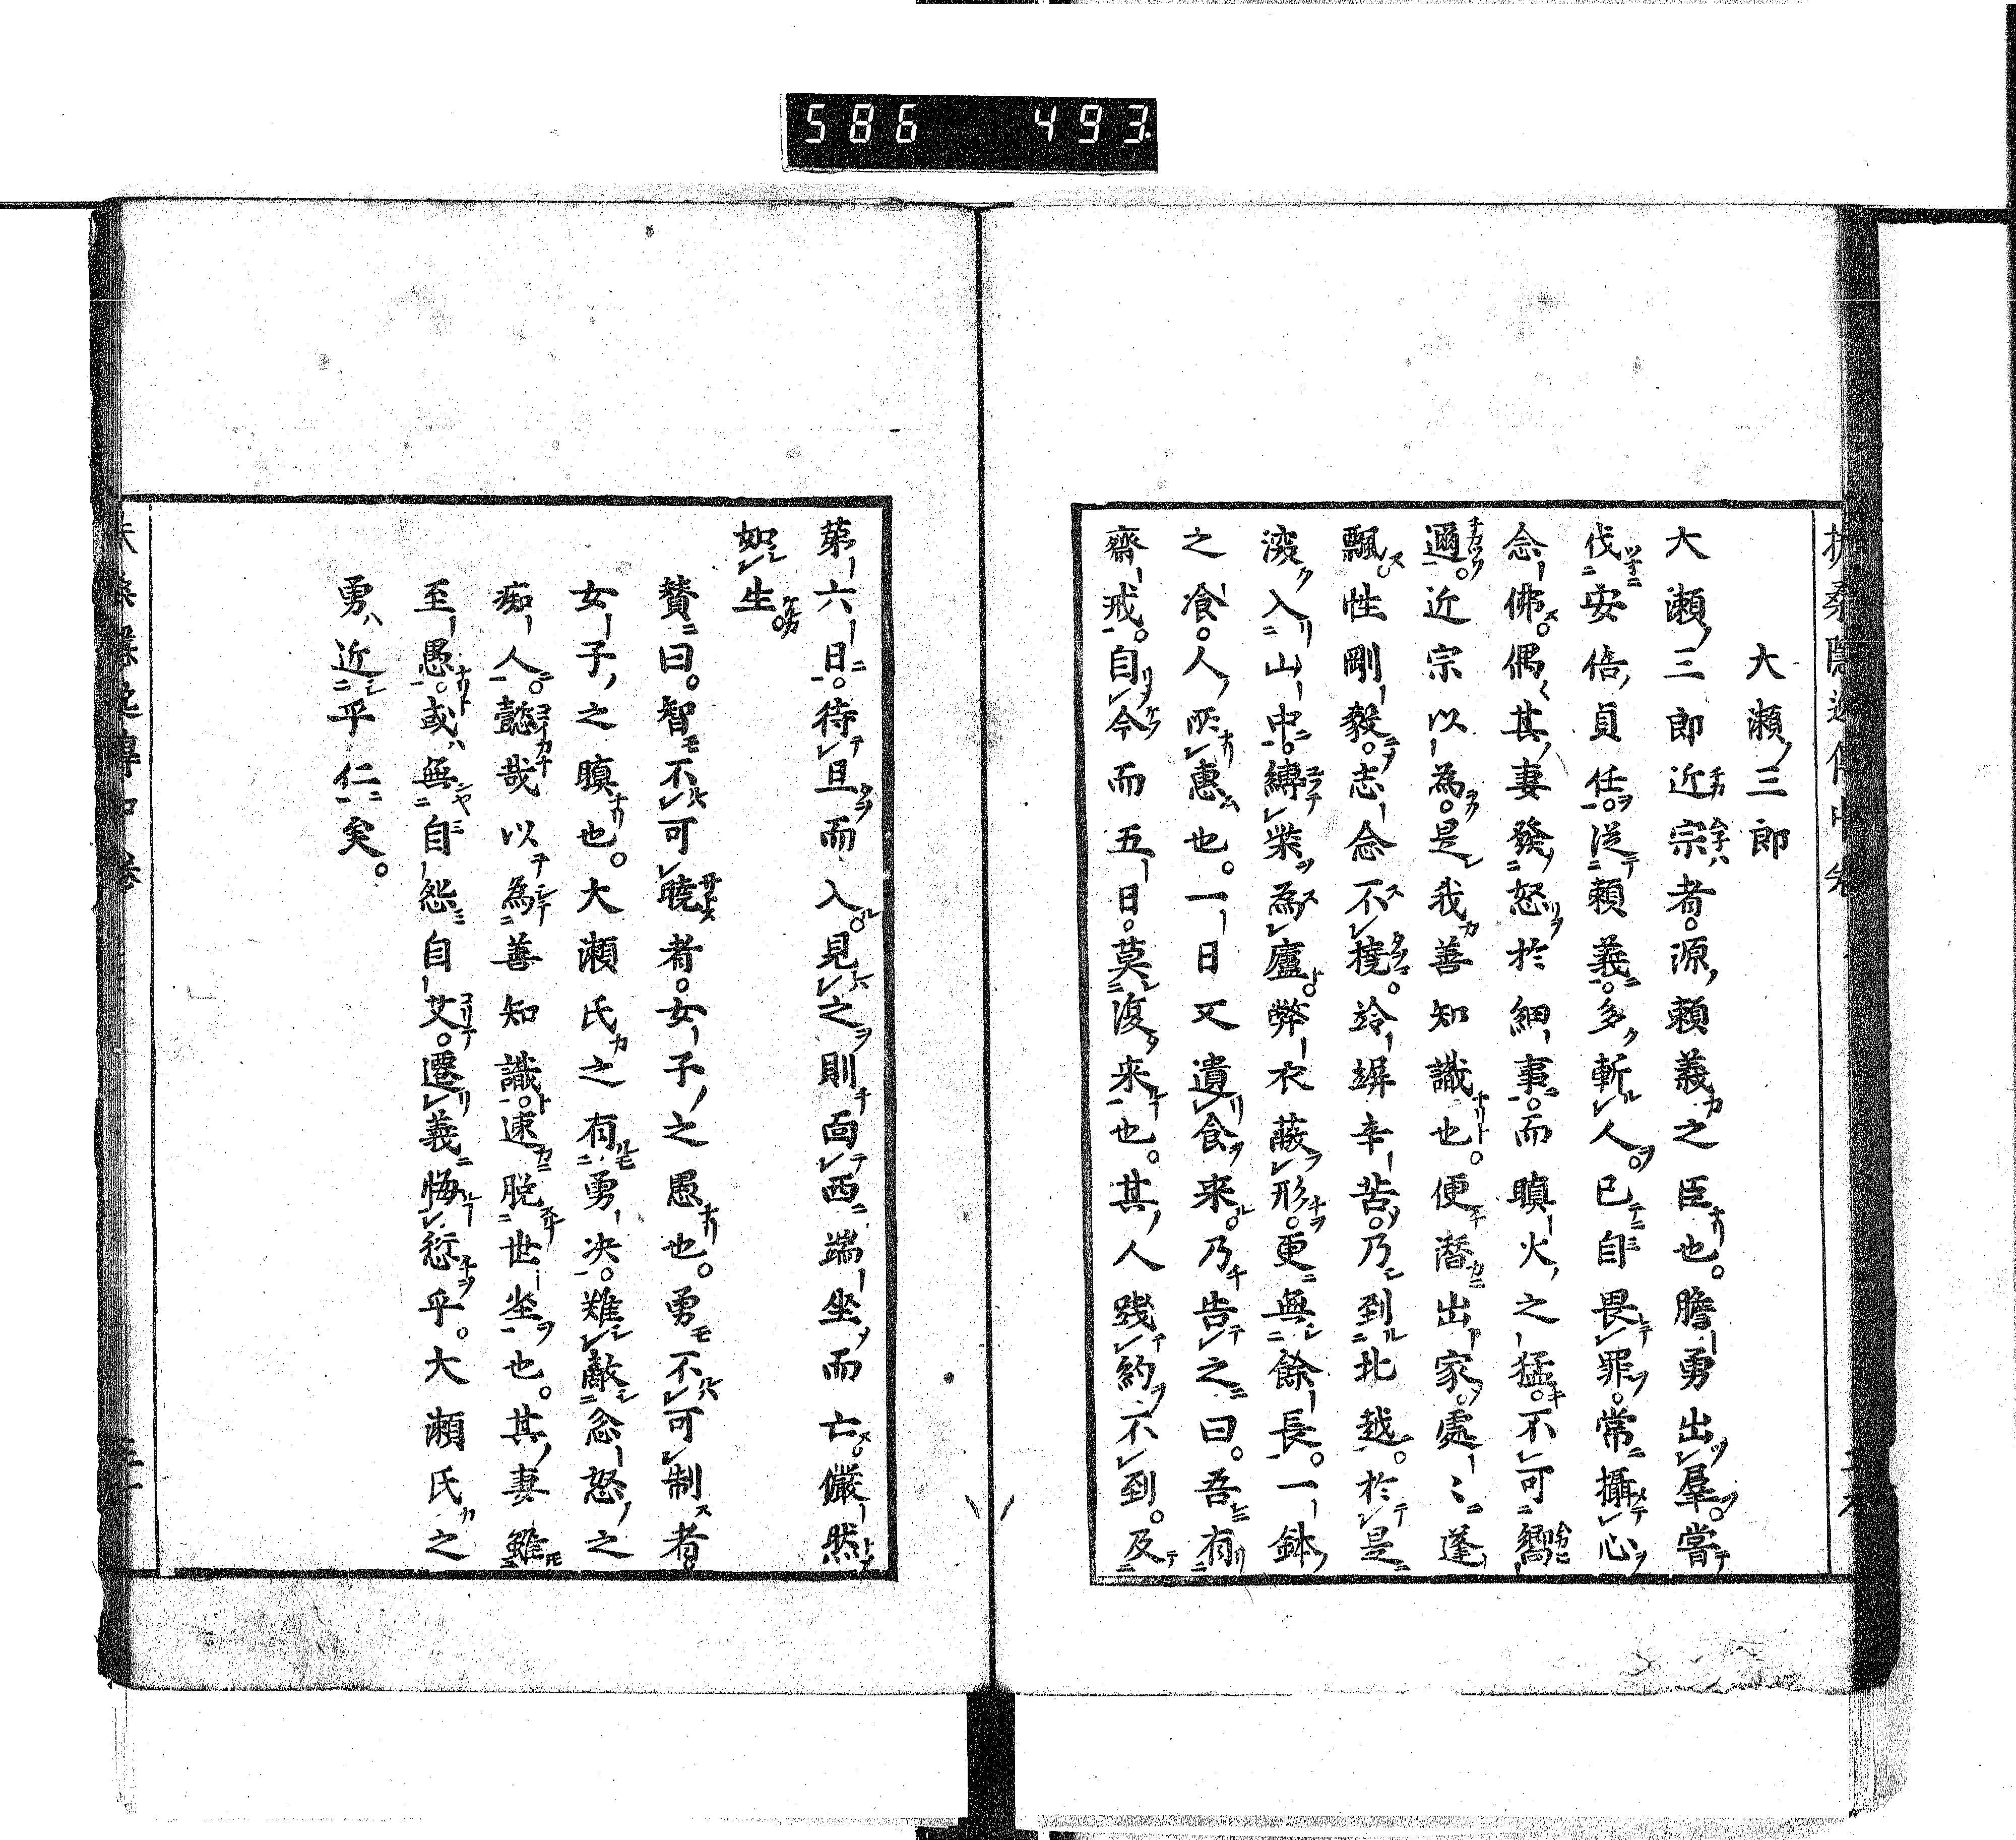 586 493
大瀬三郎
大瀬三郎近宗者。源頼義之臣也。膽勇出羣。嘗
伐安倍貞任。從頼義。多斬人。已自畏罪。常攝心
念佛。偶其妻發怒於細事。而瞋火之猛。不可嚮
邇。近宗以為。是我善知識也。便潛出家。處〻蓬
飄。性剛毅。志念不撓。竛竮辛苦。乃到北越。於是
深入山中。縛柴為廬。弊衣蔽形。更無餘長。一鉢
之飡。人所惠也。一日又遺食來。乃告之曰。吾有
齋戒。自今而五日。莫復來也。其人践約不到。及
第六日。待旦而入。見之則面西端坐而亡。儼然
如生。
贊曰。智不可曉者。女子之愚也。勇不可制者
女子之瞋也。大瀬氏之有勇決。難敵忿怒之
痴人。懿哉以為善知識。速脱世坐也。其妻雖
至愚。或無自怨自艾。遷義悔愆乎。大瀬氏之
勇近乎仁矣。
扶桑隱逸傳中卷